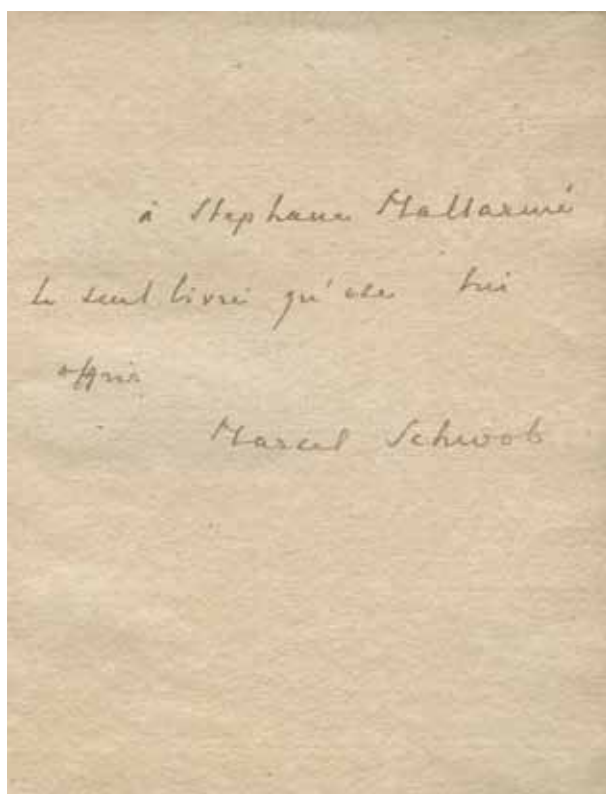 à Stéphane Mallarmé
le seul livre qu'ose lui
offrir
Marcel Schwob